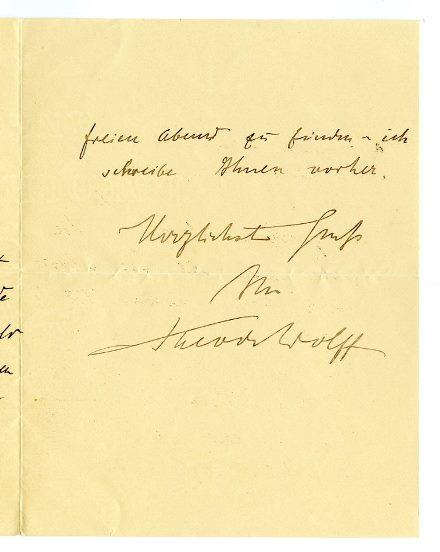 freien Abend zu finden – ich
schreibe Ihnen vorher.
Herzlichst Gruß
Ihr
Theodor Wolff